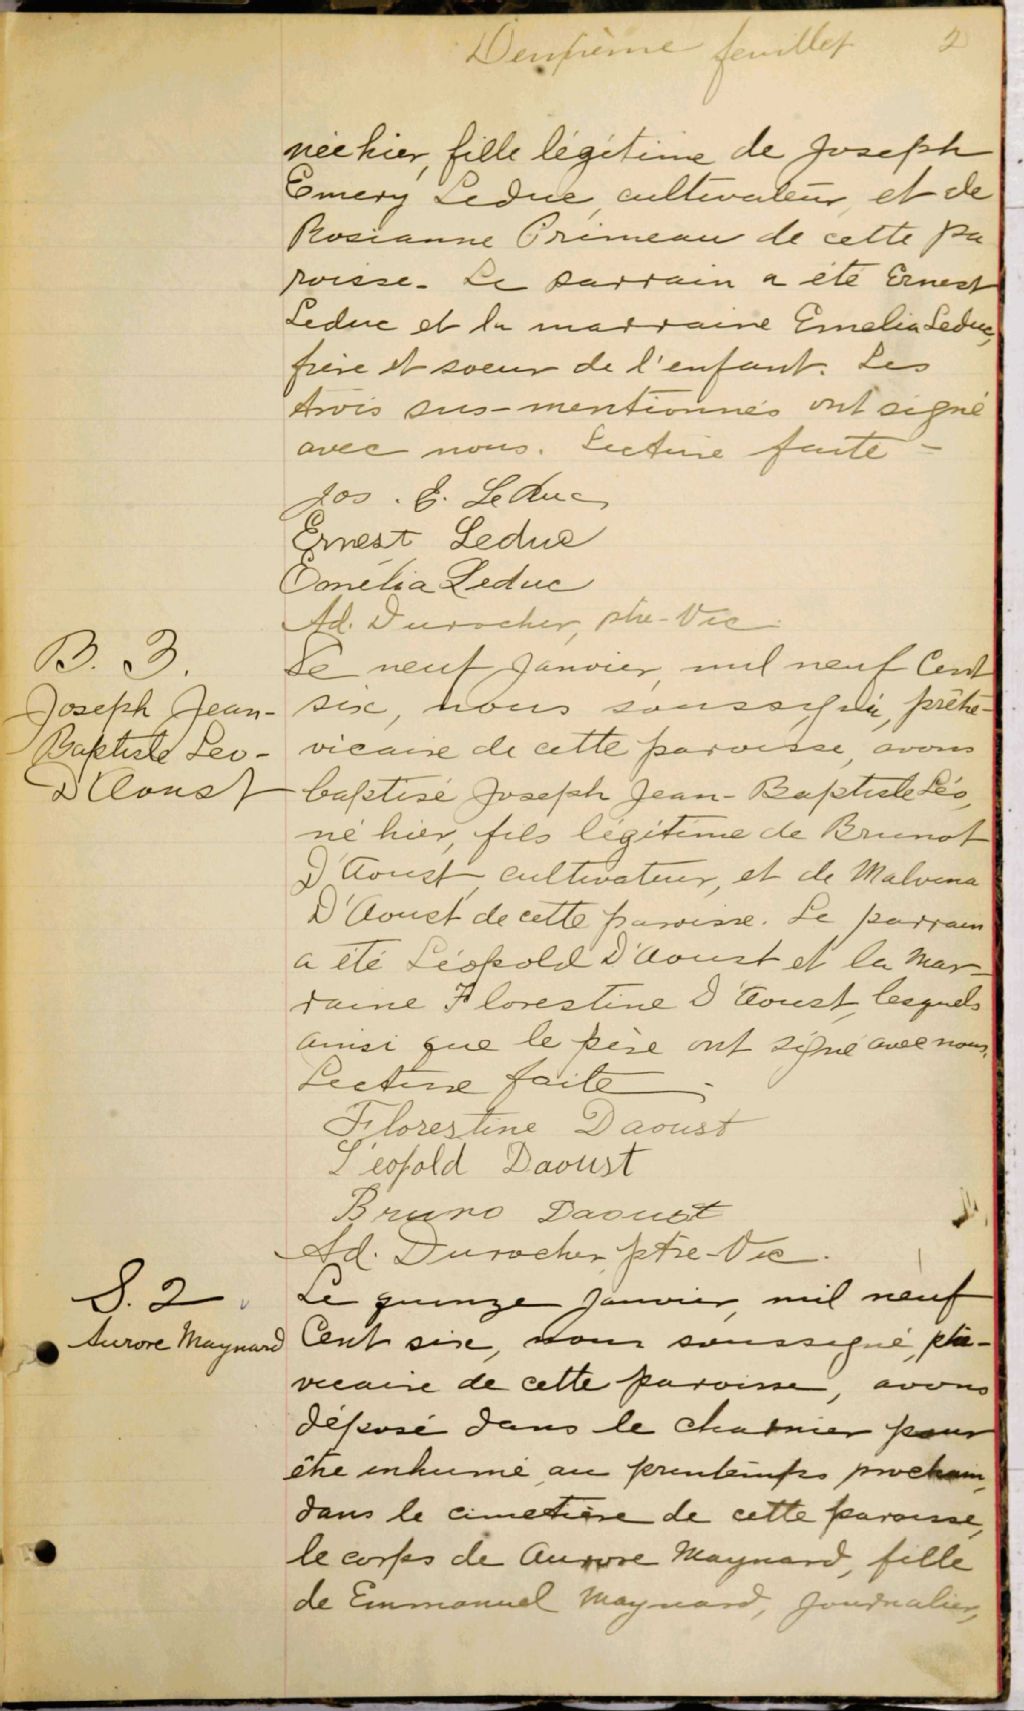 Deuxième feuillet 2
née hier, fille légitime de Joseph
Emery Leduc, cultivateur, et de
Rosianne Primeau de cette pa
roisse. Le parrain a été Ernest
Leduc et la marraine Emelia Leduc,
frère et soeur de l'enfant. Les
trois sus-mentionnés ont signé
avec nous. Lecture faite -
Jos. E. Leduc
Ernest Leduc
Emélia Leduc
Ad. Durocher, ptre-Vic.
B. 3.
Joseph Jean-
Baptiste Leo-
D'Aoust
Le neuf Janvier, mil neuf Cent
six, nous soussigné, prêtre-
vicaire de cette paroisse, avons
baptisé Joseph Jean-Baptiste Léo,
né hier, fils légitime de Brunot
D'Aoust, cultivateur, et de Malvina
D'Aoust de cette paroisse. Le parrain
a été Léopold D'Aoust et la mar-
raine Florestine D'Aoust, lesquels
ainsi que le père ont signé avec nous.
Lecture faite.
Florestine Daoust
Léopold Daoust
Bruno Daoust
Ad. Durocher, ptre-Vic.
S. 2
Aurore Maynard
Le quinze Janvier, mil neuf
Cent six, nous soussigné, ptre-
vicaire de cette paroisse, avons
déposé dans le charnier pour
être inhumé au printemps prochain,
dans le cimetière de cette paroisse,
le corps de Aurore Maynard, fille
de Emmanuel Maynard, Journalier,